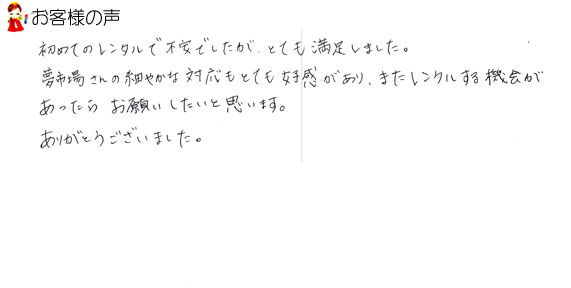 お客様の声
初めてのレンタルで不安でしたが、とても満足しました。
夢市場さんの細やかな対応もとても好感があり、またレンタルする機会が
あったらお願いしたいと思います。
ありがとうございました。